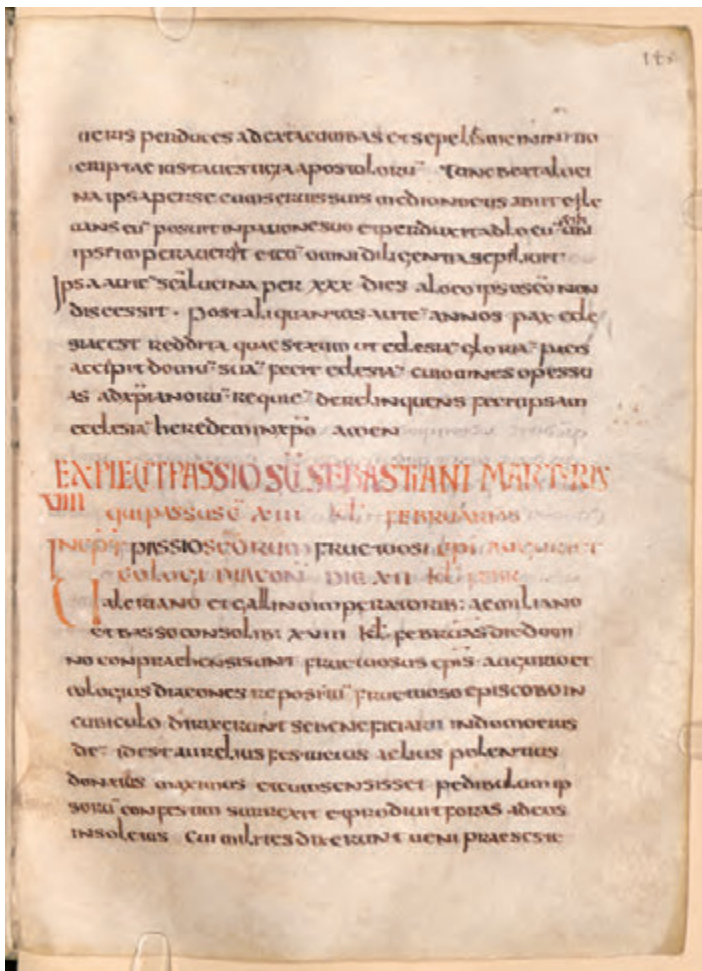 ueris perduces ad catacumbas et sepelis me in initio
criptae iusta uestigia apostoloru̅ Tunc beata luci
na ipsa per se cum seruis suis medio noctis abiit et
eu̅ posuit in pauone suo et perduxit ad locu̅ ubi
ipse imperauerat et cu̅ omni diligentia sepeliuit
Ipsa aute̅ sc̅a lucina per xxx dies a loco ipso sc̅o non
discessit · post aliquantos aute̅ annos pax ecle
siae est reddita quae statim ut eclesia gloria̅ pacis
accipit domu̅ sua̅ fecit eclesia̅ cui omnes opes su
as ad xp̅ianoru̅ requie̅ derelinquens fecit ipsam
ecclesia̅ heredem in xp̅o amen
EXPLECIT PASSIO SC̅I SEBASTIANI MARTYRIS
XIIII
qui passus e̅ xiii kl̅ februarias
Incip̅ passio sc̅orum fructuosi ep̅i auguri et
eologi diacon̅ die xii kl̅ febr
Ualeriano et gallino imperatorib: aemiliano
et basso consolib: xviii kl̅ februas die domi
no conpraehensi sunt fructuosus ep̅is augurio et
eologius diacones repositu̅ fructuoso episcobo in
cubiculo dirixerunt se beneficiarii in domo eius
de · id est aurelius festucius aelius polentius
donatus maximus et cum sensisset pedibulum ip
soru̅ confestim surrexit et prodiuit foras ad eos
in soleius Cui milites dixerunt ueni praeses te